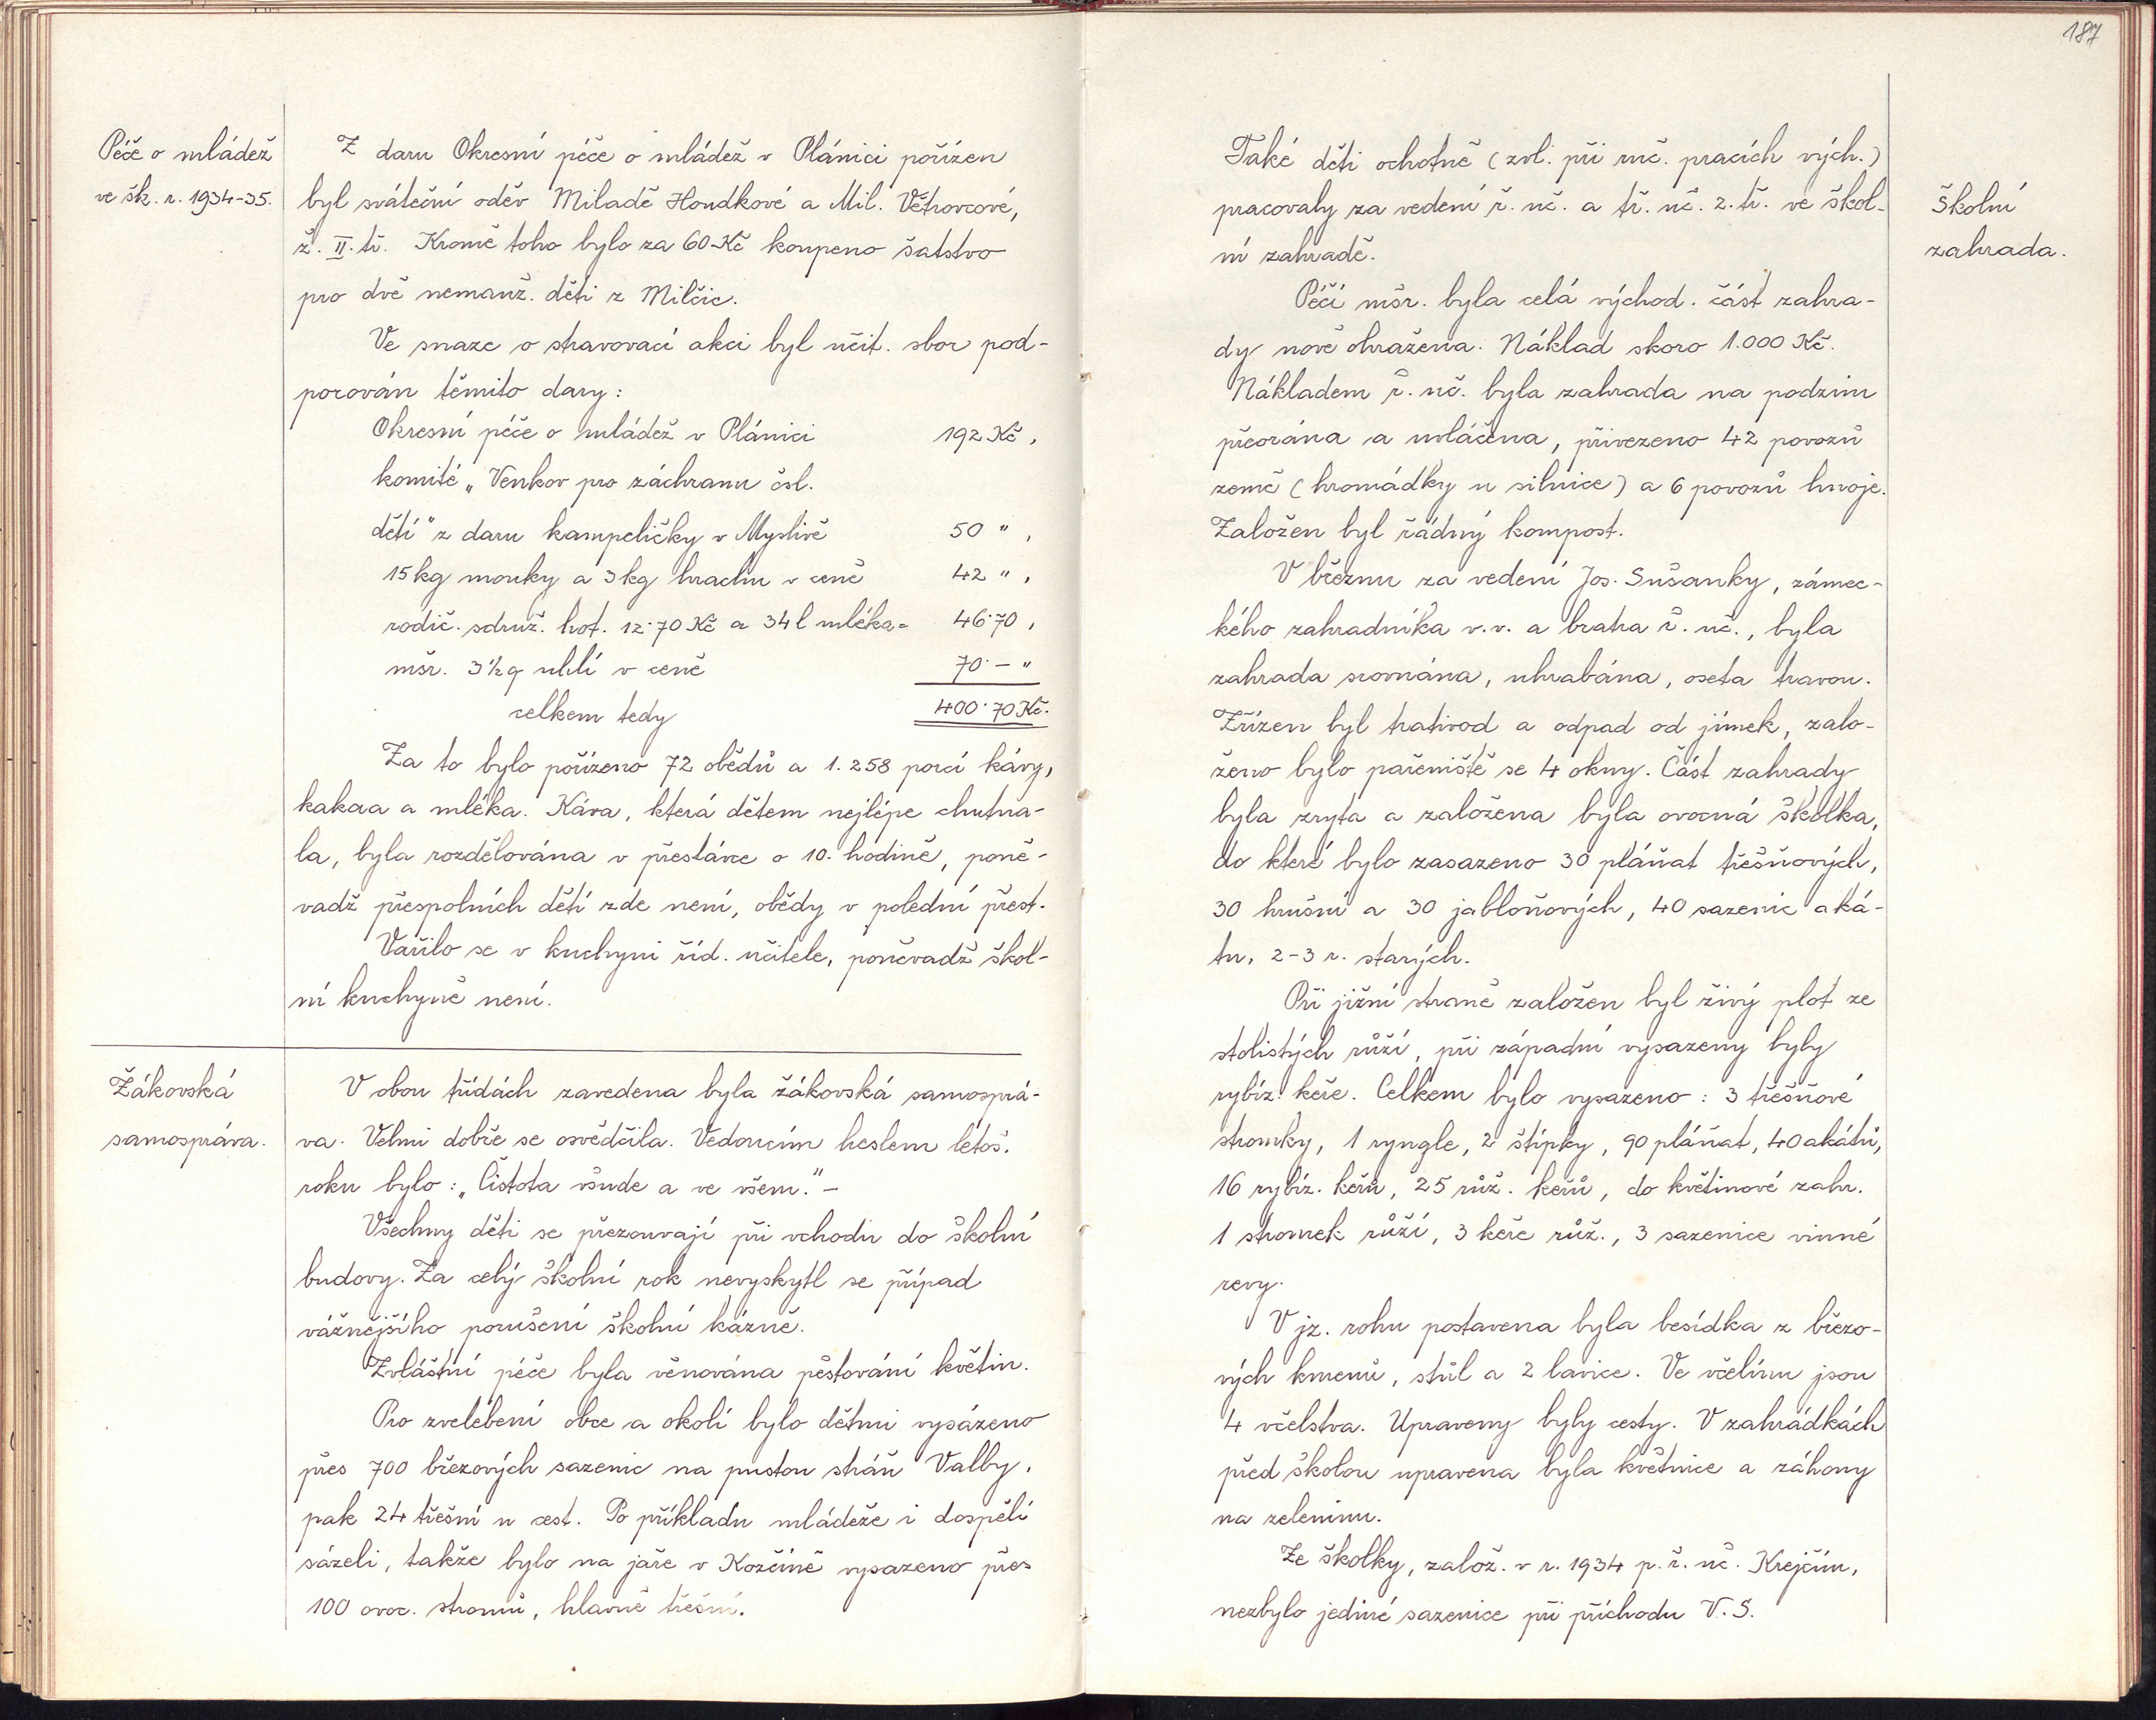 187
Péče o mládež
ve šk. r. 1934-35.
Z daru Okresní péče o mládež v Plánici pořízen
byl sváteční oděv Miladě Houdkové a Mil. Větrovcové,
ž. II. tř. Kromě toho bylo za 60 Kč koupeno šatstvo
pro dvě nemanž. děti z Milčic.
Ve snaze o stravovací akci byl učit. sbor pod-
porován těmito dary:
Okresní péče o mládež v Plánici 192 Kč,
komité „Venkov pro záchranu čsl.
dětí" z daru kampeličky v Myslivě 50 " ,
15 kg mouky a 3 kg hrachu v ceně 42 " ,
rodič. sdruž. hot. 12·70 Kč a 34 l mléka = 46·70 ,
mšr. 3½ q uhlí v ceně 70·— "
celkem tedy 400·70 Kč.
Za to bylo pořízeno 72 obědů a 1.258 porcí kávy,
kakaa a mléka. Káva, která dětem nejlépe chutna-
la, byla rozdělována v přestávce o 10. hodině, poně-
vadž přespolních dětí zde není, obědy v polední přest.
Vařilo se v kuchyni říd. učitele, poněvadž škol-
ní kuchyně není.
Žákovská
samospráva.
V obou třídách zavedena byla žákovská samosprá-
va. Velmi dobře se osvědčila. Vedoucím heslem letoš.
roku bylo: „Čistota všude a ve všem." —
Všechny děti se přezouvají při vchodu do školní
budovy. Za celý školní rok nevyskytl se případ
vážnějšího porušení školní kázně.
Zvláštní péče byla věnována pěstování květin.
Pro zvelebení obce a okolí bylo dětmi vysázeno
přes 700 březových sazenic na pustou stráň Valby,
pak 24 třešní u cest. Po příkladu mládeže i dospělí
sázeli, takže bylo na jaře v Kozčíně vysazeno přes
100 ovoc. stromů, hlavně třešní.
Také děti ochotně (zvl. při ruč. pracích vých.)
pracovaly za vedení ř. uč. a tř. uč. 2. tř. ve škol-
ní zahradě.
Školní
zahrada.
Péčí mšr. byla celá východ. část zahra-
dy nově ohražena. Náklad skoro 1.000 Kč.
Nákladem ř. uč. byla zahrada na podzim
přeorána a uvláčena, přivezeno 42 povozů
země (hromádky u silnice) a 6 povozů hnoje.
Založen byl řádný kompost.
V březnu za vedení Jos. Sušanky, zámec-
kého zahradníka v.v. a bratra ř. uč., byla
zahrada srovnána, uhrabána, oseta travou.
Zřízen byl trativod a odpad od jímek, zalo-
ženo bylo pařeniště se 4 okny. Část zahrady
byla zryta a založena byla ovocná školka,
do které bylo zasazeno 30 pláňat třešňových,
30 hrušní a 30 jabloňových, 40 sazenic aká-
tu, 2-3 r. starých.
Při jižní straně založen byl živý plot ze
stolistých růží, při západní vysazeny byly
rybíz. keře. Celkem bylo vysazeno: 3 třešňové
stromky, 1 ryngle, 2 štípky, 90 pláňat, 40 akátů,
16 rybíz. keřů, 25 růž. keřů, do květinové zahr.
1 stromek růží, 3 keře růž., 3 sazenice vinné
revy.
V jz. rohu postavena byla besídka z březo-
vých kmenů, stůl a 2 lavice. Ve včelínu jsou
4 včelstva. Upraveny byly cesty. V zahrádkách
před školou upravena byla květnice a záhony
na zeleninu.
Ze školky, založ. v r. 1934 p. ř. uč. Krejčím,
nezbylo jediné sazenice při příchodu V. S.